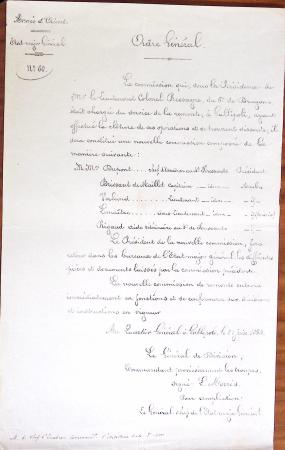 Armée d'Orient
Etat-major Général
N° 60.
Ordre Général.
La commission qui, sous la Présidence de
Mr le Lieutenant Colonel du 6e de Dragons
était chargée du service de la remonte, à Gallipoli, ayant
effectué la clôture de ses opérations et se trouvant dissoute, il
sera constitué une nouvelle commission composée de la
manière suivante :
M.Mrs Dupont, Président
Brissaut de Maillet capitaine - idem - Membre
Lieutenant - idem - id -
Sous-Lieutenant - idem -
Rigaud aide vétérinaire au
Le Président de la nouvelle commission, fera
retirer dans les bureaux de l'Etat major général les différentes
pièces et documents laissés par la commission précédente.
La nouvelle commission de remonte entrera
immédiatement en fonctions et se conformera aux décisions
et instructions en vigueur
Au Quartier Général à Gallipoli, le
Le Général de Division,
Commandant provisoirement les troupes,
signé L. Morris
Pour ampliation :
Le Général chef de l'Etat-major Général